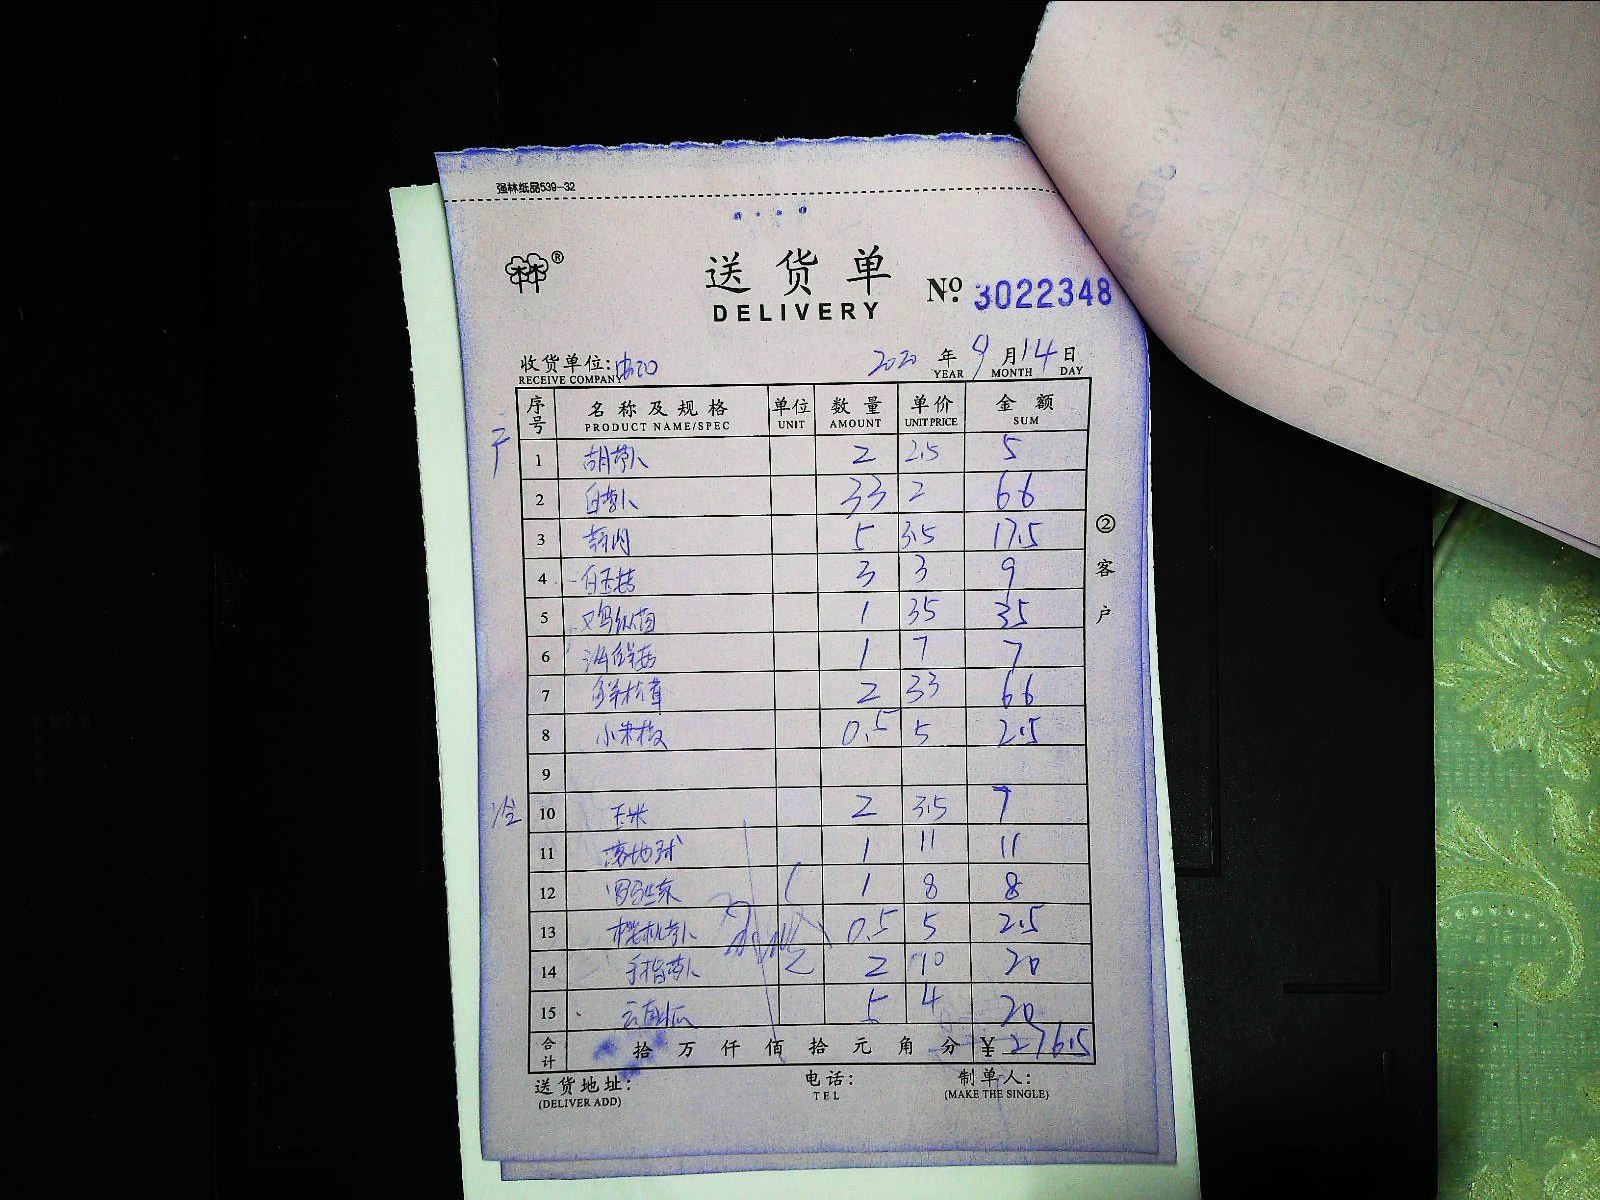 强林纸品539-32
®
送货单
DELIVERY
No. 3022348
收货单位:
2020 年 9 月 14 日
RECEIVE COMPANY YEAR MONTH DAY
序号 名称及规格 单位 数量 单价 金额
PRODUCT NAME/SPEC UNIT AMOUNT UNIT PRICE SUM
干
1 胡萝卜 2 2.5 5
2 白萝卜 33 2 66
3 5 3.5 17.5
4 白玉菇 3 3 9
5 鸡枞菌 1 35 35
6 海鲜菇 1 7 7
7 鲜松茸 2 33 66
8 小米椒 0.5 5 2.5
9
冷
10 玉米 2 3.5 7
11 落地球 1 11 11
12 罗马生菜 1 8 8
13 樱桃萝卜 0.5 5 2.5
14 手指萝卜 2 10 20
15 5 4 20
合计 拾万仟佰拾元角分 ¥ 276.5
②客户
送货地址: 电话: 制单人:
(DELIVER ADD) TEL (MAKE THE SINGLE)